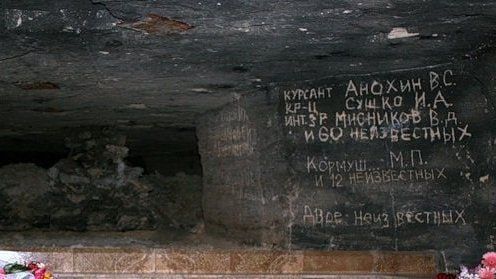 КУРСАНТ АНОХИН В.С.
КР-Ц СУШКО И.А.
ИНТ 3Р МИСНИКОВ В.Д.
И 60 НЕИЗВЕСТНЫХ
КОРМУШ. М.П.
И 12 НЕИЗВЕСТНЫХ
ДВОЕ НЕИЗВЕСТНЫХ